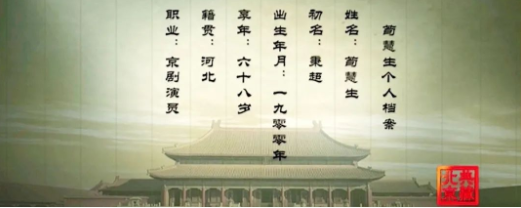 荀慧生个人档案
姓名：荀慧生
初名：秉超
出生年月：一九零零年
享年：六十八岁
籍贯：河北
职业：京剧演员